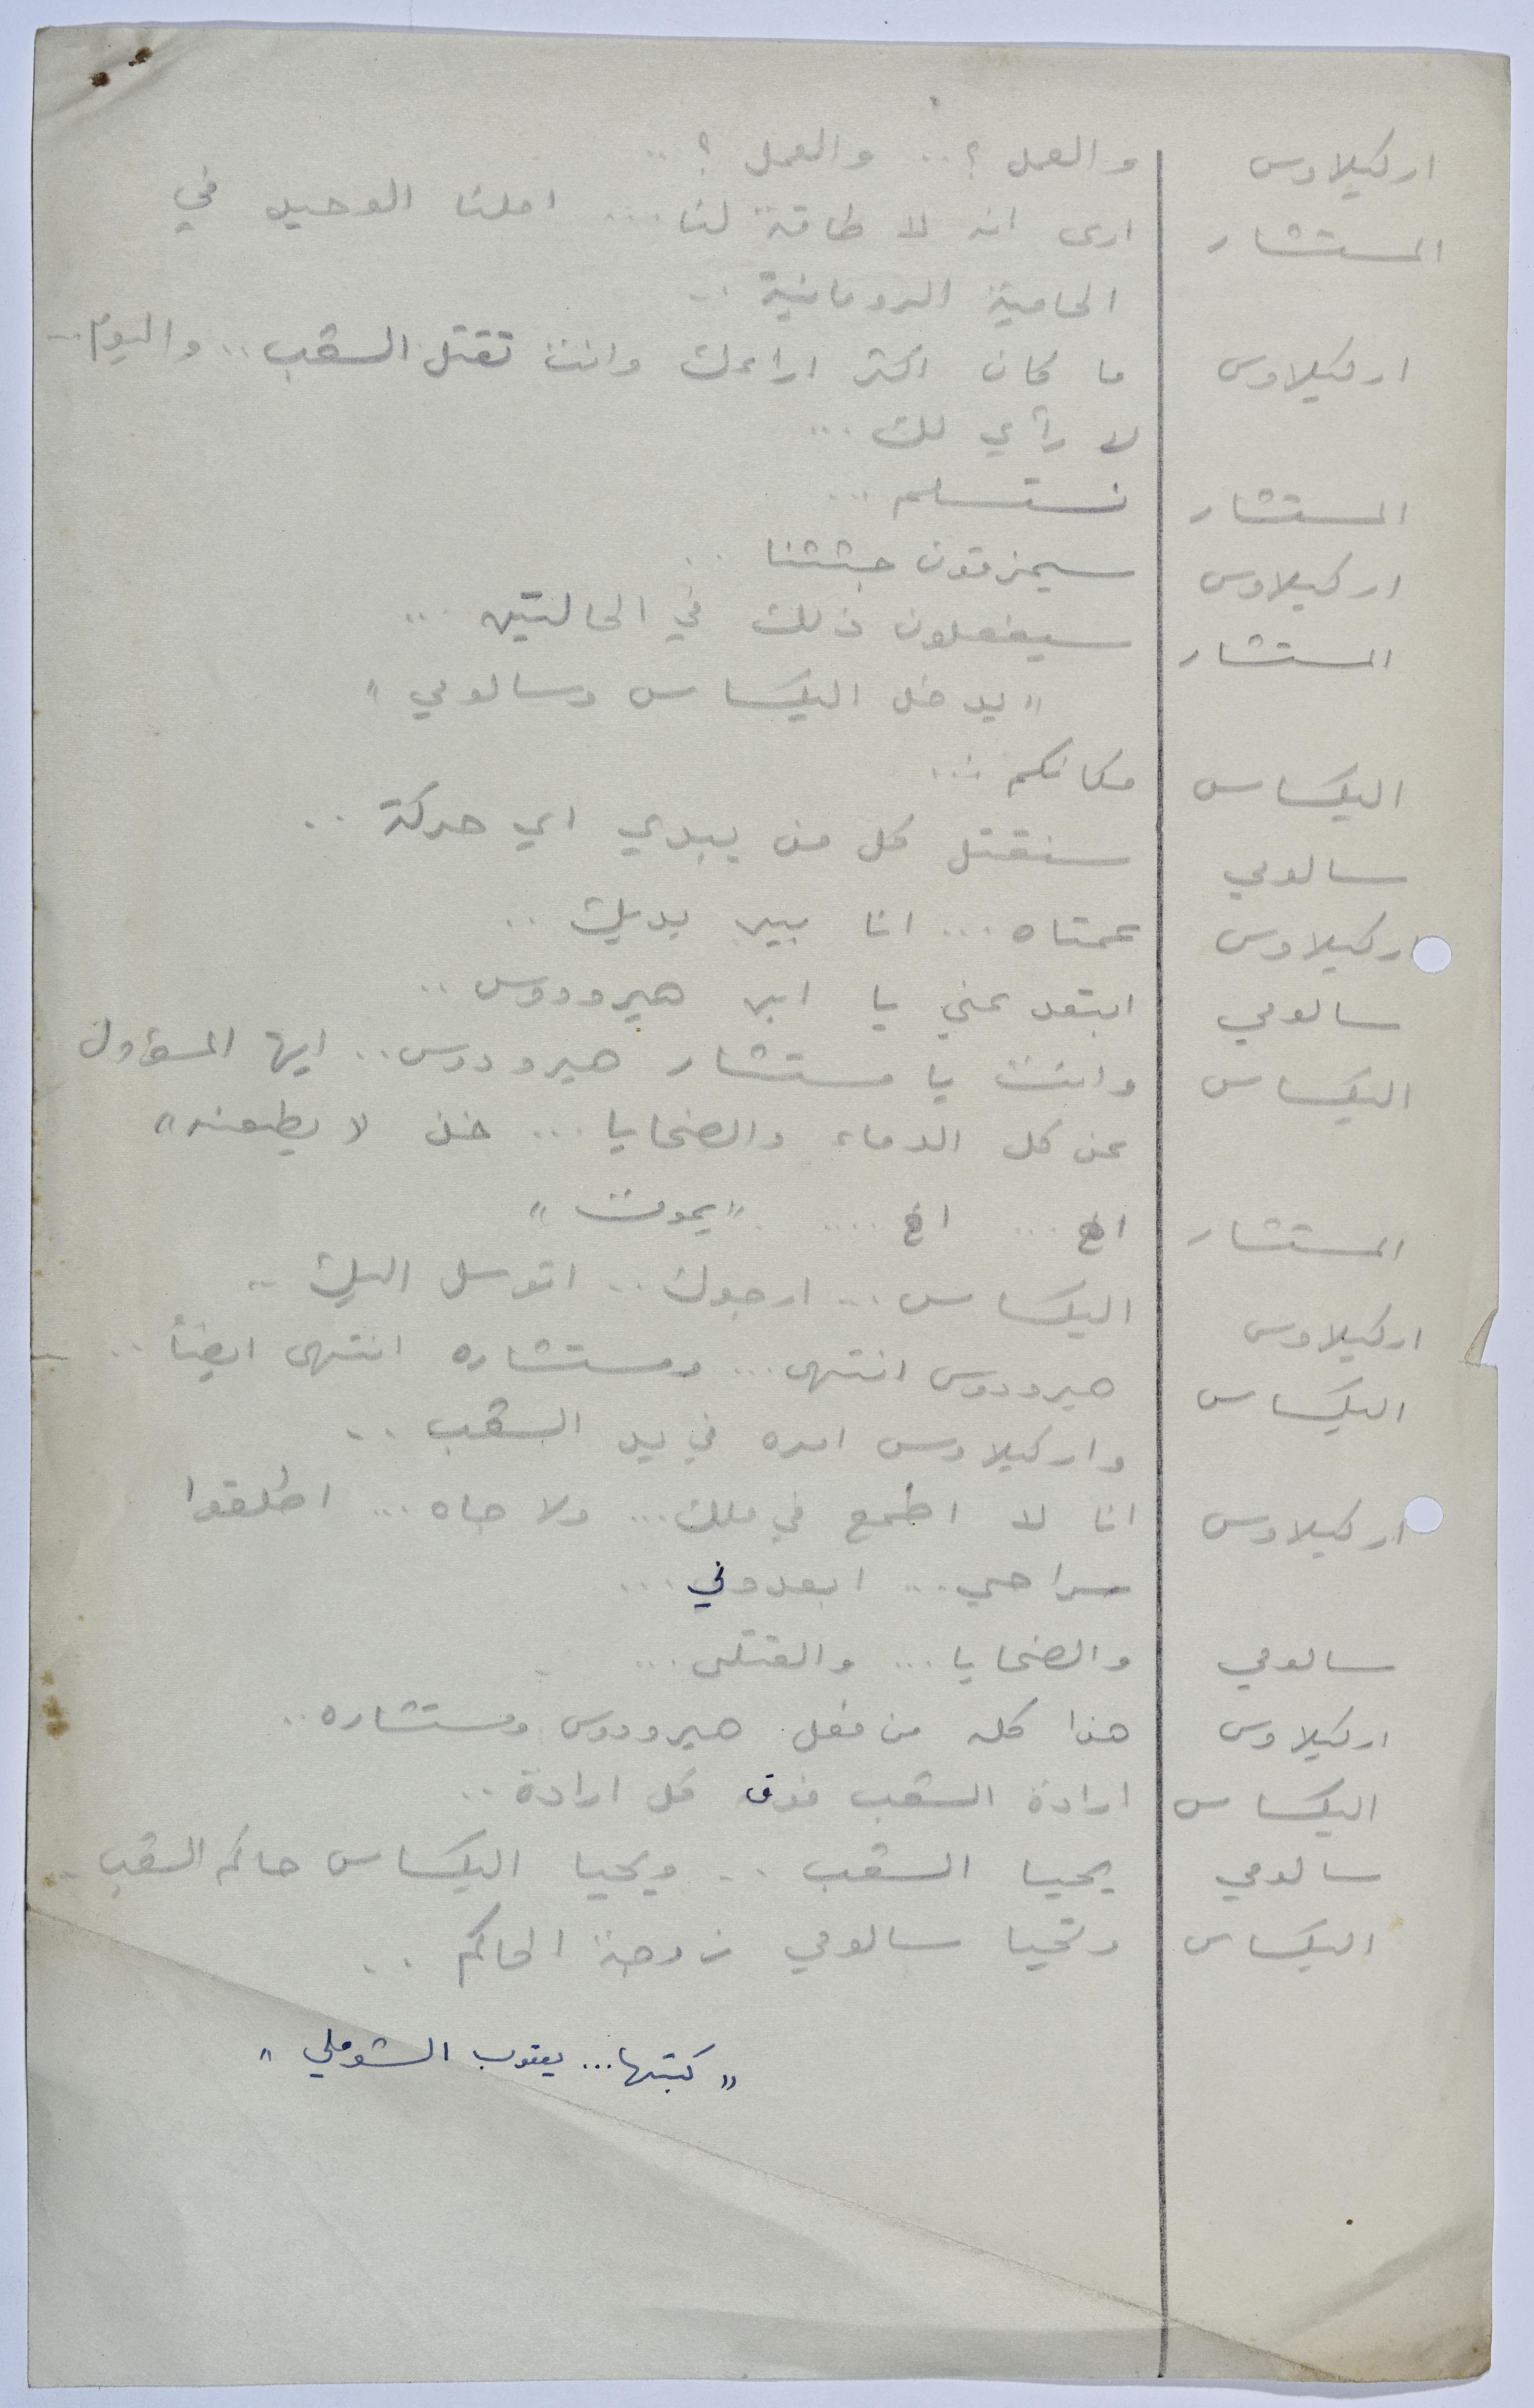 اركيلاوس والعمل ؟.. والعمل ؟..
المستشار ارى انه لا طاقة لنا... املنا الوحيد في
الحامية الرومانية ..
اركيلاوس ما كان اكثر اراءك وانت تقتل الشعب.. واليوم..
لا رأي لك...
المستشار نستسلم ...
اركيلاوس سيمزقون جثثنا ..
المستشار سيفعلون ذلك في الحالتين ...
"يدخل اليكساس وسالومي"
اليكساس مكانكم ...
سالومي سنقتل كل من يبدي اي حركة ..
اركيلاوس عمتاه... انا بين يديك ..
سالومي ابتعد عني يا ابن هيرودوس ..
اليكساس وانت يا مستشار هيرودوس.. ايها المسؤول
عن كل الدماء والضحايا ... خذ لا يطعنه"
المستشار اخ ... اخ .... "يموت"
اركيلاوس اليكساس... ارجوك.. اتوسل اليك ..
اليكساس هيرودوس انتهى.. ومستشاره انتهى ايضاً ..
واركيلاوس امره في يد الشعب ..
اركيلاوس انا لا اطمع في ملك... ولا جاه ... اطلقوا
سراحي... ابعدوني ...
سالومي والضحايا ... والقتلى ...
اركيلاوس هذا كله من فعل هيرودوس ومستشاره ..
اليكساس ارادة الشعب فوق كل ارادة ..
سالومي يحيا الشعب .. ويحيا اليكساس حاكم الشعب ..
اليكساس وتحيا سالومي زوجة الحاكم ..
"كتبها... يعقوب الشوملي"